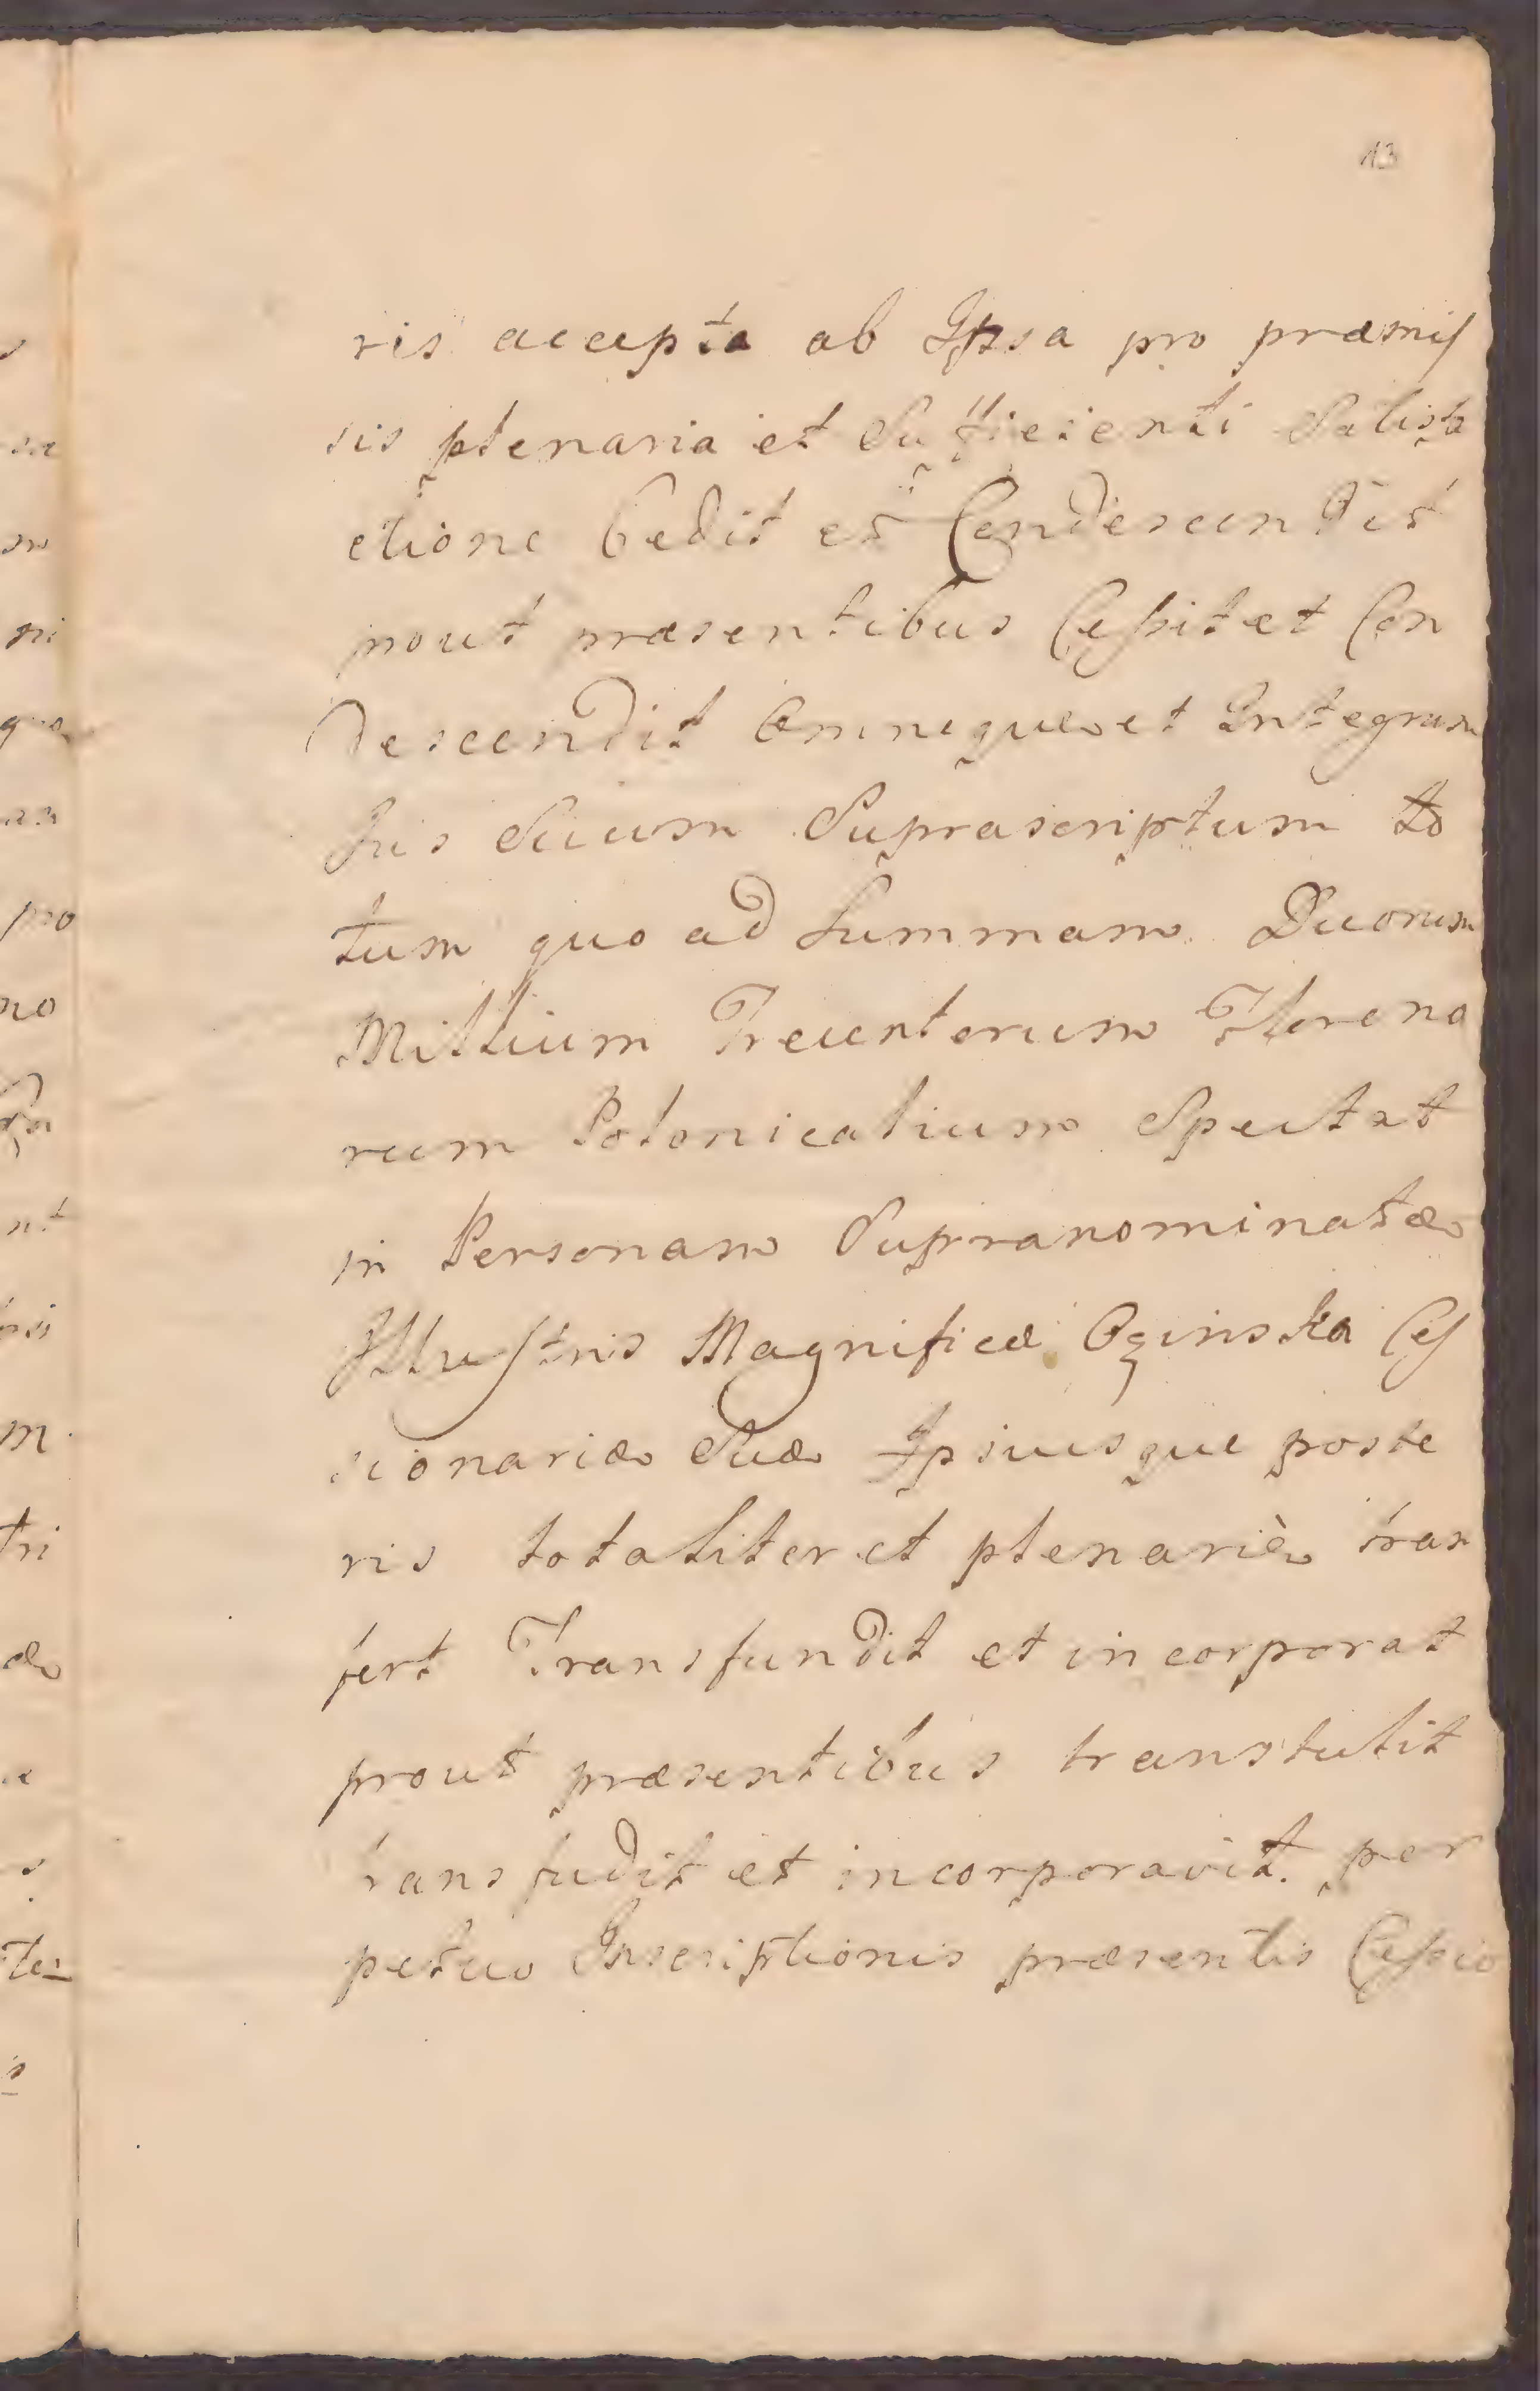 13
ris accepta ab Ipsa pro præmis
sis plenaria et Sufficienti Satisfa
ctione Cedit et Condescendit
prout præsentibus Cessit et Con
descendit Omneque et Integrum
Jus Suum Suprascriptum to
tum quo ad Summam Duorum
Millium Trecentorum Floreno
rum Polonicalium Spectat
in Personam Supranominatæ
Illustris Magnificæ Oginska Ces
sionariæ Suæ Ipsiusque poste
ris totaliter et plenariè trans
fert Transfundit et incorporat
prout præsentibus transtulit
transfudit et incorporavit. per
petuo Inscriptionis præsentis Cessio